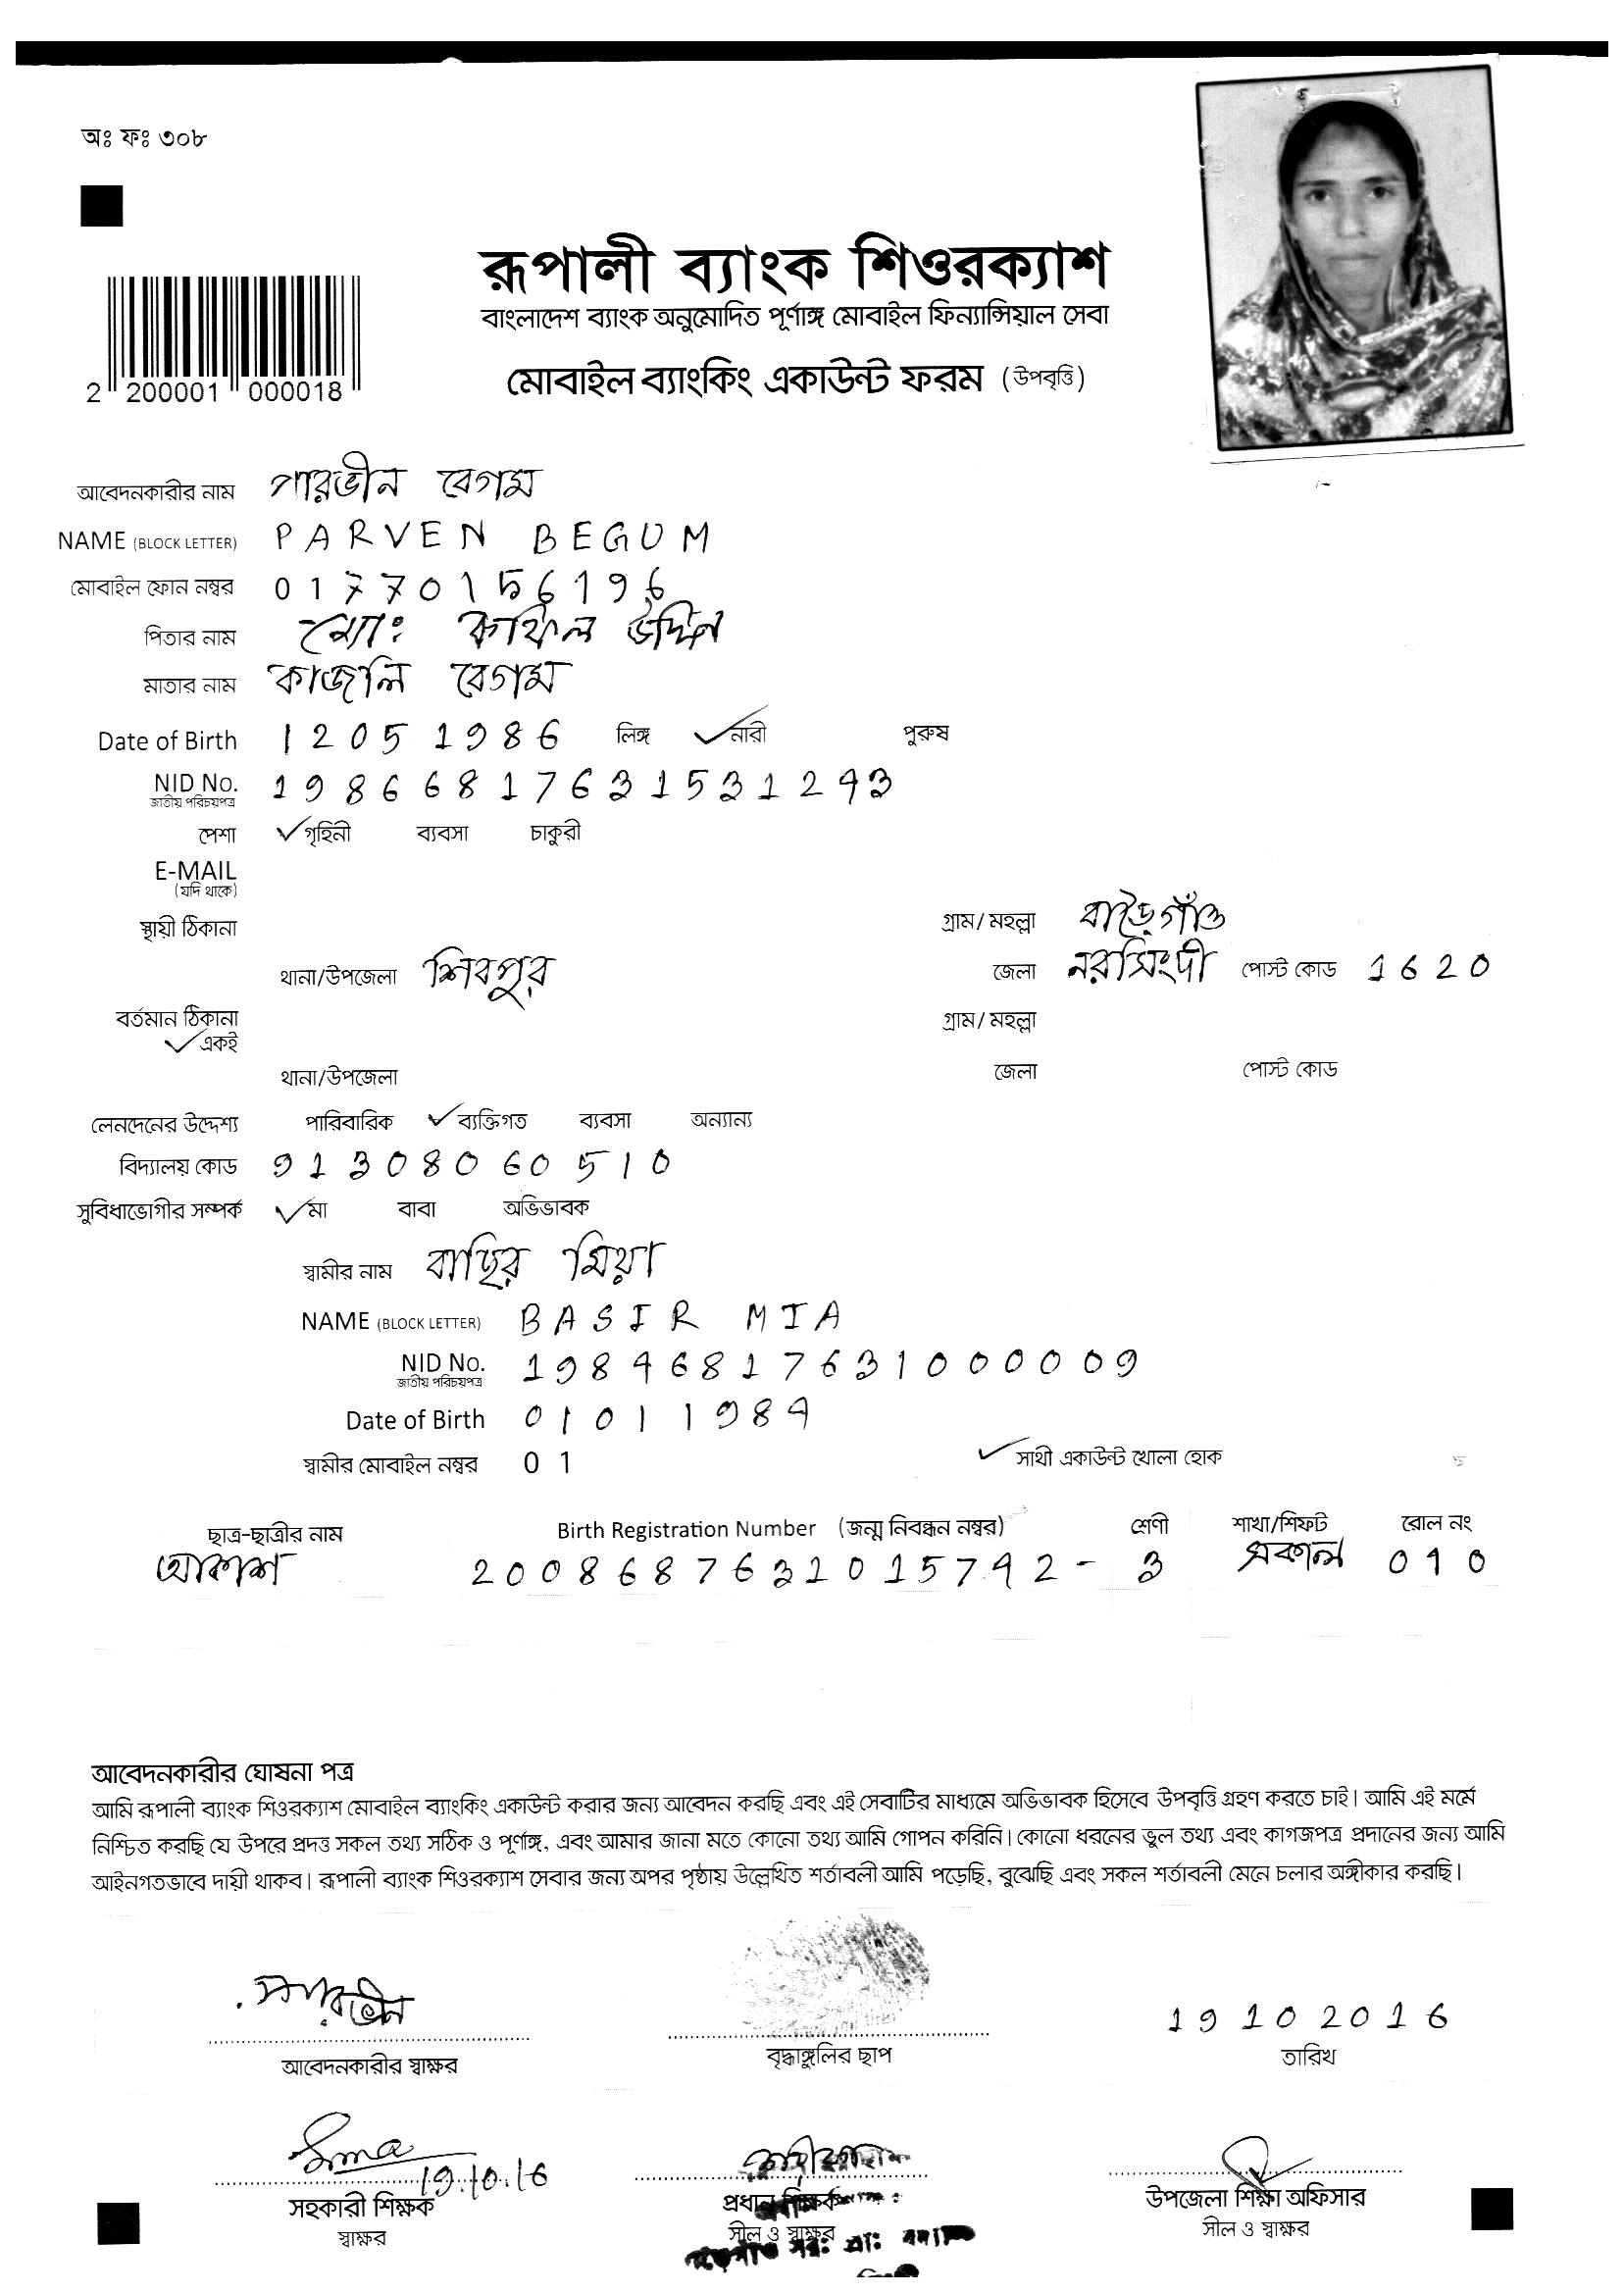 অঃ ফঃ ৩০৮
রূপালী ব্যাংক শিওরক্যাশ
বাংলাদেশ ব্যাংক অনুমোদিত পূর্ণাঙ্গ মোবাইল ফিন্যান্সিয়াল সেবা
মোবাইল ব্যাংকিং একাউন্ট ফরম (উপবৃত্তি)
2 200001 000018
আবেদনকারীর নাম পারভীন বেগম
NAME (BLOCK LETTER) PARVEN BEGUM
মোবাইল ফোন নম্বর 01770156196
পিতার নাম মোঃ কাফিল উদ্দিন
মাতার নাম কাজলি বেগম
Date of Birth 12051986 লিঙ্গ ✓নারী পুরুষ
NID No. 19866817631531293
জাতীয় পরিচয়পত্র
পেশা ✓গৃহিনী ব্যবসা চাকুরী
E-MAIL
(যদি থাকে)
স্থায়ী ঠিকানা গ্রাম/মহল্লা বাড়ৈগাঁও
থানা/উপজেলা শিবপুর জেলা নরসিংদী পোস্ট কোড 1620
বর্তমান ঠিকানা গ্রাম/মহল্লা
✓একই
থানা/উপজেলা জেলা পোস্ট কোড
লেনদেনের উদ্দেশ্য পারিবারিক ✓ব্যক্তিগত ব্যবসা অন্যান্য
বিদ্যালয় কোড 91308060510
সুবিধাভোগীর সম্পর্ক ✓মা বাবা অভিভাবক
স্বামীর নাম বাছির মিয়া
NAME (BLOCK LETTER) BASIR MIA
NID No. 19846817631000009
জাতীয় পরিচয়পত্র
Date of Birth 01011984
স্বামীর মোবাইল নম্বর 01 ✓সাথী একাউন্ট খোলা হোক
ছাত্র-ছাত্রীর নাম Birth Registration Number (জন্ম নিবন্ধন নম্বর) শ্রেণী শাখা/শিফট রোল নং
আকাশ 2008687631015792- 3 সকাল 010
আবেদনকারীর ঘোষনা পত্র
আমি রূপালী ব্যাংক শিওরক্যাশ মোবাইল ব্যাংকিং একাউন্ট করার জন্য আবেদন করছি এবং এই সেবাটির মাধ্যমে অভিভাবক হিসেবে উপবৃত্তি গ্রহণ করতে চাই। আমি এই মর্মে
নিশ্চিত করছি যে উপরে প্রদত্ত সকল তথ্য সঠিক ও পূর্ণাঙ্গ, এবং আমার জানা মতে কোনো তথ্য আমি গোপন করিনি। কোনো ধরনের ভুল তথ্য এবং কাগজপত্র প্রদানের জন্য আমি
আইনগতভাবে দায়ী থাকব। রূপালী ব্যাংক শিওরক্যাশ সেবার জন্য অপর পৃষ্ঠায় উল্লেখিত শর্তাবলী আমি পড়েছি, বুঝেছি এবং সকল শর্তাবলী মেনে চলার অঙ্গীকার করছি।
পারভীন 19102016
আবেদনকারীর স্বাক্ষর বৃদ্ধাঙ্গুলির ছাপ তারিখ
19.10.16
সহকারী শিক্ষক প্রধান শিক্ষক উপজেলা শিক্ষা অফিসার
স্বাক্ষর সীল ও স্বাক্ষর সীল ও স্বাক্ষর